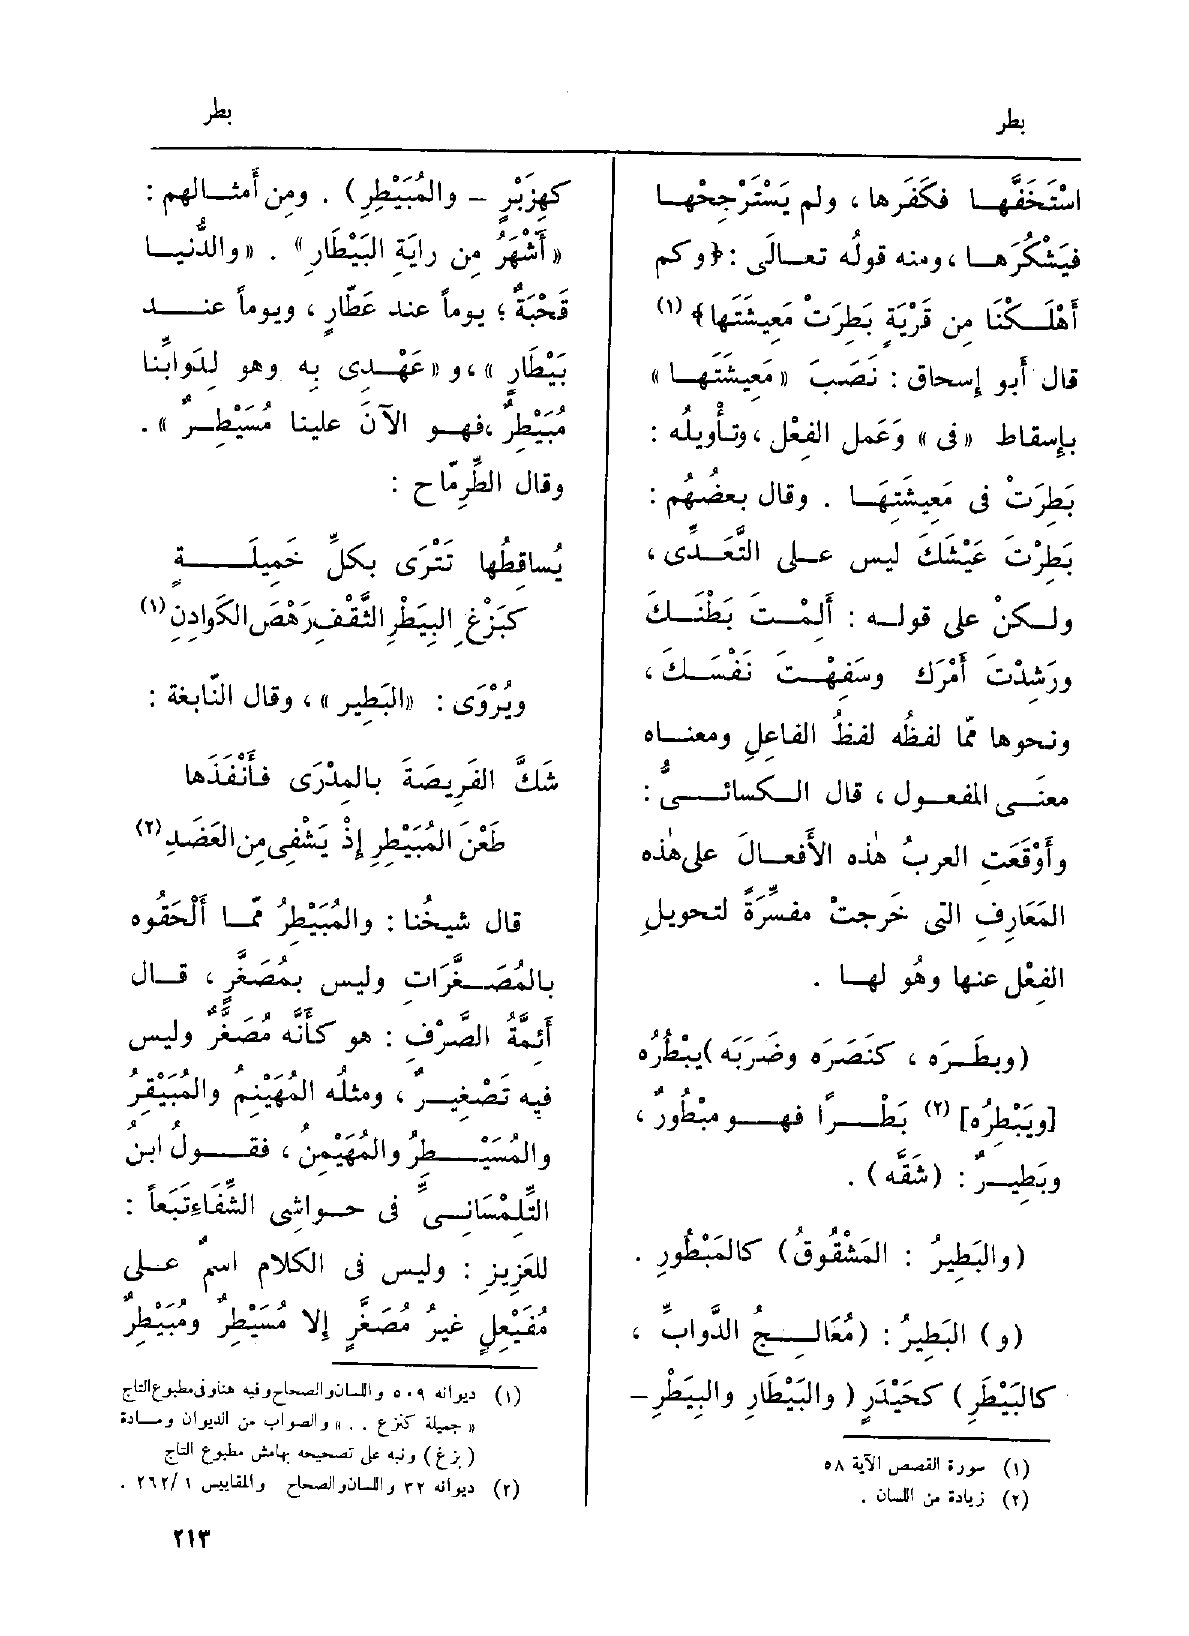 بطر
بطر
اسْتَخَفَّهـا فكَفَرها ، ولم يَسْتَرْجِحْهـا
فيَشْكُرَهـا ، ومنه قولُه تعـالَى : ﴿وكم
أَهْلَـكْنَا مِن قَرْيَةٍ بَطِرَتْ مَعِيشَتَها﴾ (١)
قال أبو إسحاق : نَصَبَ « مَعِيشَتَهـا »
بإسقاط « فى » وَعَمل الفِعْل ، وتـأْويلُه :
بَطِرَتْ فى مَعِيشَتِهَـا . وقال بعضُهُم :
بَطِرْتَ عَيْشَكَ ليس علـى التَّعَـدِّى ،
ولـكنْ على قولـه : أَلِمْـتَ بَطْنَـكَ
ورَشِدْتَ أَمْرَك وسَفِهْـتَ نَفْسَـكَ ،
ونحوها ممّا لفظُه لفظُ الفاعلِ ومعنـاه
معنَـى المفعـول ، قال الـكسائـىُّ :
وأَوْقَعَتِ العربُ هٰذه الأَفعـالَ على هٰذه
المَعَارِفِ التى خَرجتْ مفسِّرَةً لتحويلِ
الفِعْل عنها وهُو لهـا .
(وبطَـرَه ، كنَصَرَه وضَرَبَه) يبْطُرُه
[ويَبْطِرُه] (٢) بَطْـرًا فهـو مبْطُورٌ ،
وبَطِيـرٌ : (شَقَّه) .
(والبَطِيرُ : المَشْقُوقُ) كالمَبْطُورِ .
(و) البَطِيرُ : (مُعَالِـجُ الدَّوابِّ ،
كالبَيْطَرِ) كحَيْدَرٍ (والبَيْطَارِ والبِيَطْرِ –
(١) سورة القصص الآية ٥٨
(٢) زيادة من اللسان .
كهِزَبْرٍ – والمُبَيْطِرِ) . ومِن أَمثـالهم :
« أَشْهَرُ مِن رايَةِ البَيْطَارِ» . « والدُّنيـا
قَحْبَةٌ ؛ يوماً عند عَطّارٍ ، ويوماً عنـد
بَيْطَارٍ » ، و « عَهْـدِى به وهو لِدَوابِّنا
مُبَيْطِرٌ ، فهـو الآنَ علينا مُسَيْطِـرٌ » .
وقال الطِّرِمّاح :
يُساقِطُها تَتْرَى بكلِّ خَمِيلَـةٍ
كبَزْغِ البِيَطْرِ الثَّقْفِ رَهْصَ الكَوادِنِ (١)
ويُرْوَى : «البَطِير » ، وقال النّابغة :
شَكَّ الفَرِيصَةَ بالمِدْرَى فـأَنْفَذَها
طَعْنَ المُبَيْطِرِ إذْ يَشْفِى مِن العَضَدِ (٢)
قال شيخُنا : والمُبَيْطِرُ ممّـا أَلْحَقُوه
بالمُصَـغَّرَاتِ وليس بمُصَغَّرٍ ، قـال
أَئِمَّةُ الصَّرْفِ : هو كأَنَّه مُصَغَّرٌ وليس
فيه تَصْغِيـرٌ ، ومثلُه المُهَيْنِم والمُبَيْقِرُ
والمُسَيْـطِرُ والمُهَيْمِنُ ، فقـولُ ابنُ
التِّلِمْسَانِـىِّ فى حـواشِى الشِّفَاءِ تَبَعاً :
للعَزِيزِ : وليس فى الكلام اسمٌ علـى
مُفَيْعِلٍ غيرُ مُصَغَّرٍ إلا مُسَيْطِرٌ ومُبَيْطِرٌ
(١) ديوانه ٥٠٩ واللسان والصحاح وفيه هنا وفى مطبوع التاج
« جميلة كنزع . . » والصواب من الديوان ومـادة
(بزغ) ونبه على تصحيحه بهامش مطبوع التاج
(٢) ديوانه ٣٢ واللسان والصحاح والمقاييس ٢٦٢/١ .
٢١٣